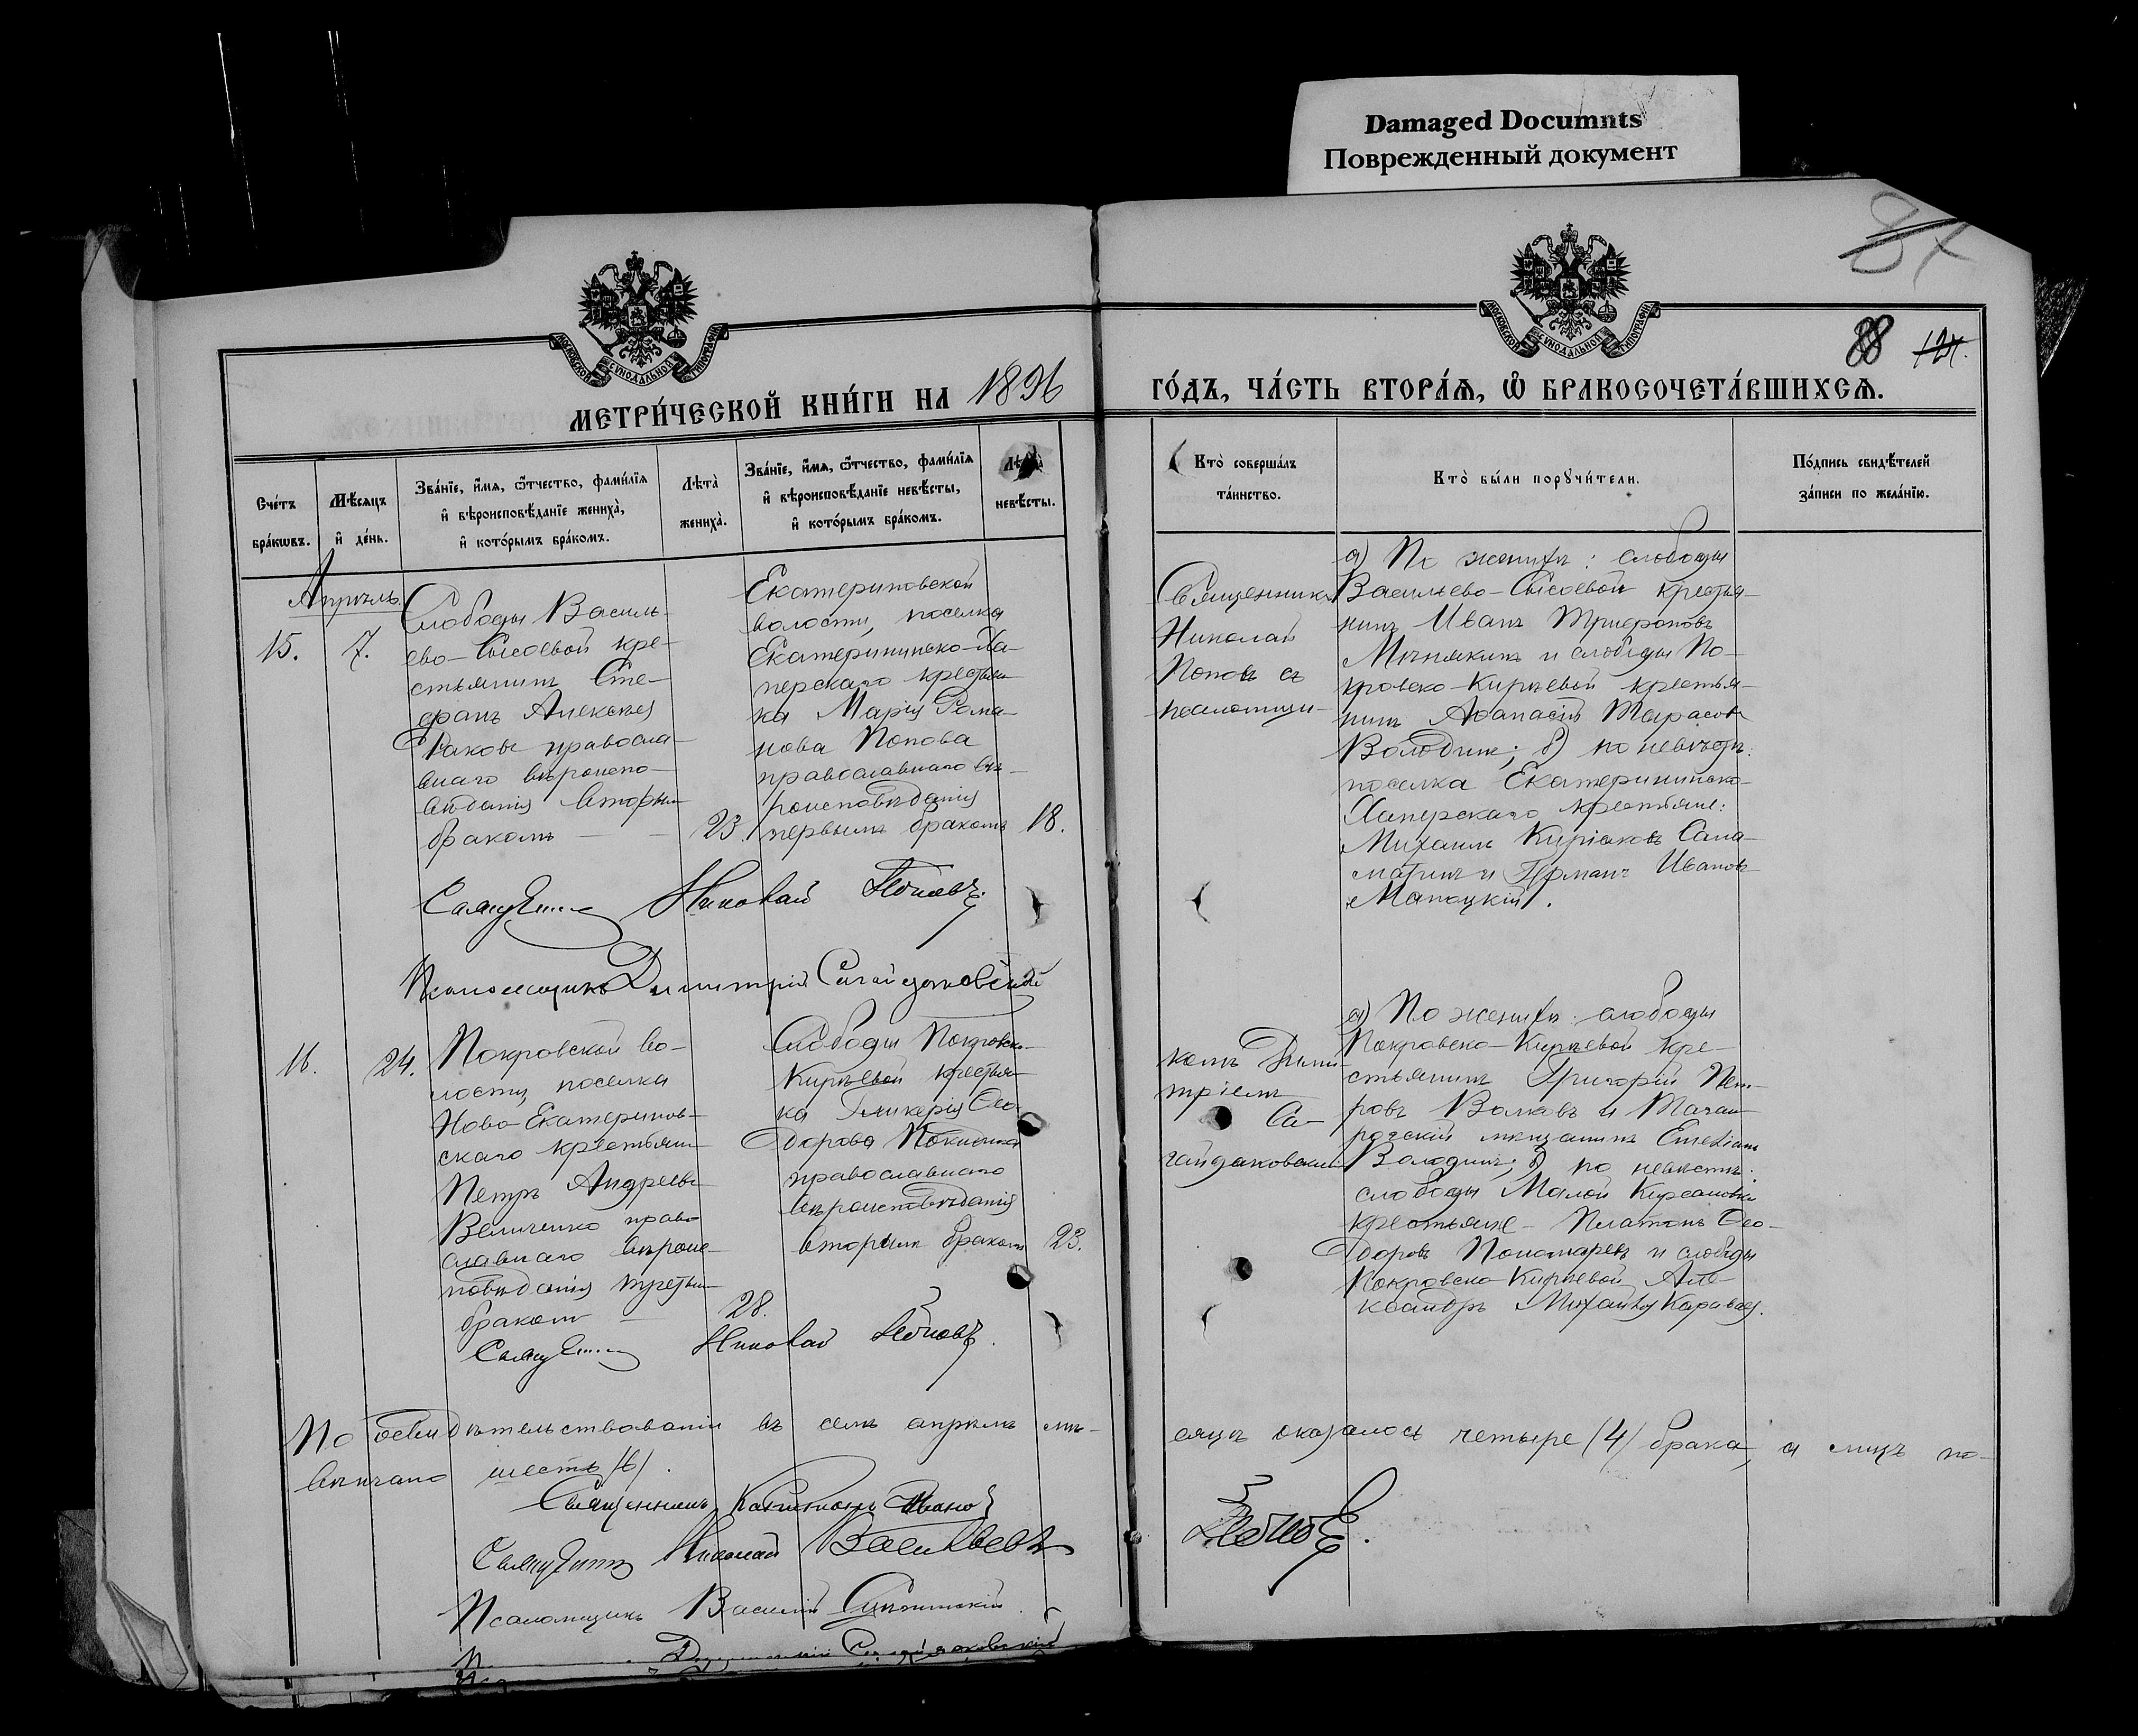 Damaged Documnts
Поврежденный документ
88
МЕТРИ́ЧЕСКОЙ КНИ́ГИ НА 1896
ГО́ДЪ, ЧА́СТЬ ВТОРА́Я, Ѽ БРАКОСОЧЕТА́ВШИХСѦ.
МОСКОВСКОЙ СѴНОДАЛЬНОЙ ТИПОГРАФІИ
МОСКОВСКОЙ СѴНОДАЛЬНОЙ ТИПОГРАФІИ
Сче́тъ
бра́кѡвъ.
Мѣ́сяцъ
и҆ де́нь.
Зва́нїе, и҆́мѧ, ѻ҆́тчество, фами́лїѧ
и҆ вѣроисповѣ́данїе жениха̀,
и҆ кото́рымъ бра́комъ.
Лѣта̀
жениха̀.
Зва́нїе, и҆́мѧ, ѻ҆́тчество, фами́лїѧ
и҆ вѣроисповѣ́данїе невѣ́сты,
и҆ кото́рымъ бра́комъ.
невѣ́сты.
Кто̀ соверша́лъ
та́инство.
Кто̀ бы́ли порꙋчи́тели.
По́дпись свидѣ́телей
за́писи по жела́нїю.
Апрѣль.
15.
7.
Слободы Василь-
ево-Сысоевой кре-
стьянинъ Сте-
фанъ Алексѣевъ
Раковъ правосла-
внаго вѣроиспо-
вѣданія вторым
бракомъ
23.
Екатериновской
волости, поселка
Екатерининско-Ха-
перскаго крестьян-
ка Марія Рома-
нова Попова
православнаго вѣ-
роисповѣданія
первымъ бракомъ
18.
Священникъ
Николай
Поповъ съ
псаломщи-
а) По женихѣ: слободы
Васильево-Сысоевой крестья-
нинъ Иванъ Трифоновъ
и слободы По-
кровско-Кирѣевой крестья-
нинъ Афанасій Тарасовъ
Володинъ; б) по невѣстѣ:
поселка Екатерининско-
Хаперскаго крестьяне:
Михаилъ Киріаковъ Сама-
ринъ и Германъ Ивановъ
Священникъ Николай Поповъ.
Псаломщикъ Димитрій Сагайдаковскій
16.
24.
Покровской во-
лости, поселка
Ново-Екатеринов-
скаго крестьянинъ
Петръ Андреевъ
Величенко право-
славнаго вѣроис-
повѣданія третьимъ
бракомъ
28.
Слободы Покровско-
Кирѣевой крестьян-
ка Гликерія Ѳео-
дорова
православнаго
вѣроисповѣданія
вторымъ бракомъ
23.
комъ Дими-
тріемъ
Са-
гайдаковскимъ
а) По женихѣ: слободы
Покровско-Кирѣевой кре-
стьянинъ Григорій Пет-
ровъ Волковъ и Таган-
рогскій мѣщанинъ Емеліанъ
Володинъ; б) по невѣстѣ:
слободы Малой Кирсановки
крестьяне - Платонъ Ѳео-
доровъ Пономаревъ и слободы
Покровско-Кирѣевой Але-
ксандръ Михайловъ Караваевъ.
Священникъ Николай Поповъ.
По освидѣтельствованіи въ семъ апрѣлѣ мѣ-
сяцѣ оказалось четыре (4) брака, а лицъ по-
вѣнчано шесть (6).
Священникъ
Священникъ Николай Васильевъ
Поповъ.
Псаломщикъ Василій
Димитрій Сагайдаковскій